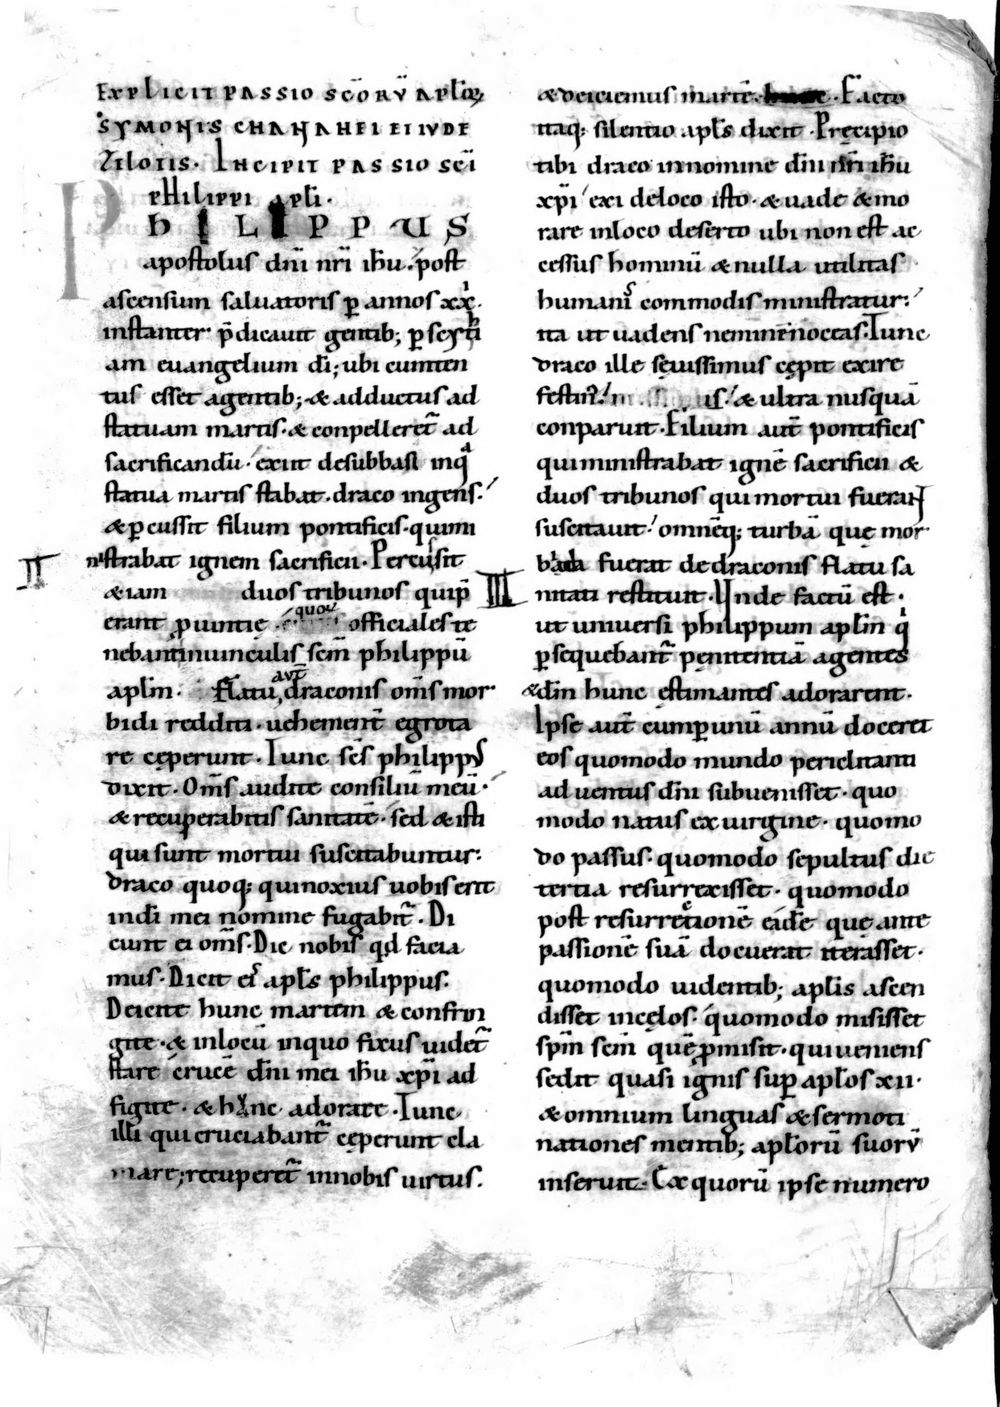 EXPLICIT PASSIO SCŌRV̄ APLŌR
SYMONIS CHANANEI ET IVDE
ZELOTIS. INCIPIT PASSIO SC̄I
PHILIPPI APLI.
PHILIPPUS
apostolus dn̄i nr̄i ih̄u. post
ascensum saluatoris p̱ annos xx.
instanter p̄dicauit gentib; p̱ scythi
am euangelium dī; ubi cum ten
tus esset agentib; & adductus ad
statuam martis. & conpelleret̄ ad
sacrificandū. exiit desubbasi inqᵃ
statua martis stabat. draco ingens.
& p̱cussit filium pontificis. quimi
nistrabat ignem sacrificii. Percussit
II
& iam duos tribunos quip̄
erant ꝓuintię quoꝝ officiales te
nebant inuinculis sc̄m philippū
aplm̄. Flatu aut̄ draconis om̄s mor
bidi redditi. uehement̄ egrota
re cęperunt. Tunc sc̄s philippus
dixit. Om̄s audite consiliū meū.
& recuperabitis sanitatē. sed & isti
qui sunt mortui suscitabuntur.
draco quoq; quinoxius uobis erit
indī mei nomine fugabit̄. Di
cunt ei om̄s. Dic nobis qd̄ facia
mus. Dicit eis apl̄s philippus.
Deicite hunc martem & confrin
gite. & inlocū inquo fixus uidet̄
stare crucē dn̄i mei ih̄u xp̄i ad
figite. & hanc adorate. Tunc
illi qui cruciabant̄ cęperunt cla
mare; recuperet̄ innobis uirtus.
& deiciemus martē. Facto
itaq; silentio apl̄s dixit. Pręcipio
tibi draco innomine dn̄i nr̄i ih̄u
xp̄i exi deloco isto. & uade & mo
rare inloco deserto ubi non est ac
cessus hominū & nulla utilitas
humanis commodis ministratur.
ita ut uadens neminēnoceas. Tunc
draco ille sęuissimus cępit exire
festin & ultra nusquā
conparuit. Filium aut̄ pontificis
qui ministrabat ignē sacrificii &
duos tribunos qui mortui fuerant
suscitauit. omnēq; turbā quę mor
bida fuerat dedraconis flatu sa
III
nitati restituit. Unde factū est.
ut uniuersi philippum aplm̄ qⁱ
p̱sequebant̄ penitentiā agentes
& dm̄ hunc estimantes adorarent.
Ipse aut̄ cum p̱ unū annū doceret
eos quomodo mundo periclitanti
aduentus dn̄i subuenisset. quo
modo natus ex uirgine. quomo
do passus. quomodo sepultus die
tertia resurrexisset. quomodo
post resurrectionē eadē quę ante
passionē suā docuerat iterasset.
quomodo uidentib; aplis ascen
disset incęlos. quomodo misisset
spm̄ sc̄m quē ꝓmisit. qui ueniens
sedit quasi ignis sup̱ apl̄os xii.
& omnium linguas & sermoci
nationes mentib; apl̄orū suorū
inseruit. Ex quorū ipse numero